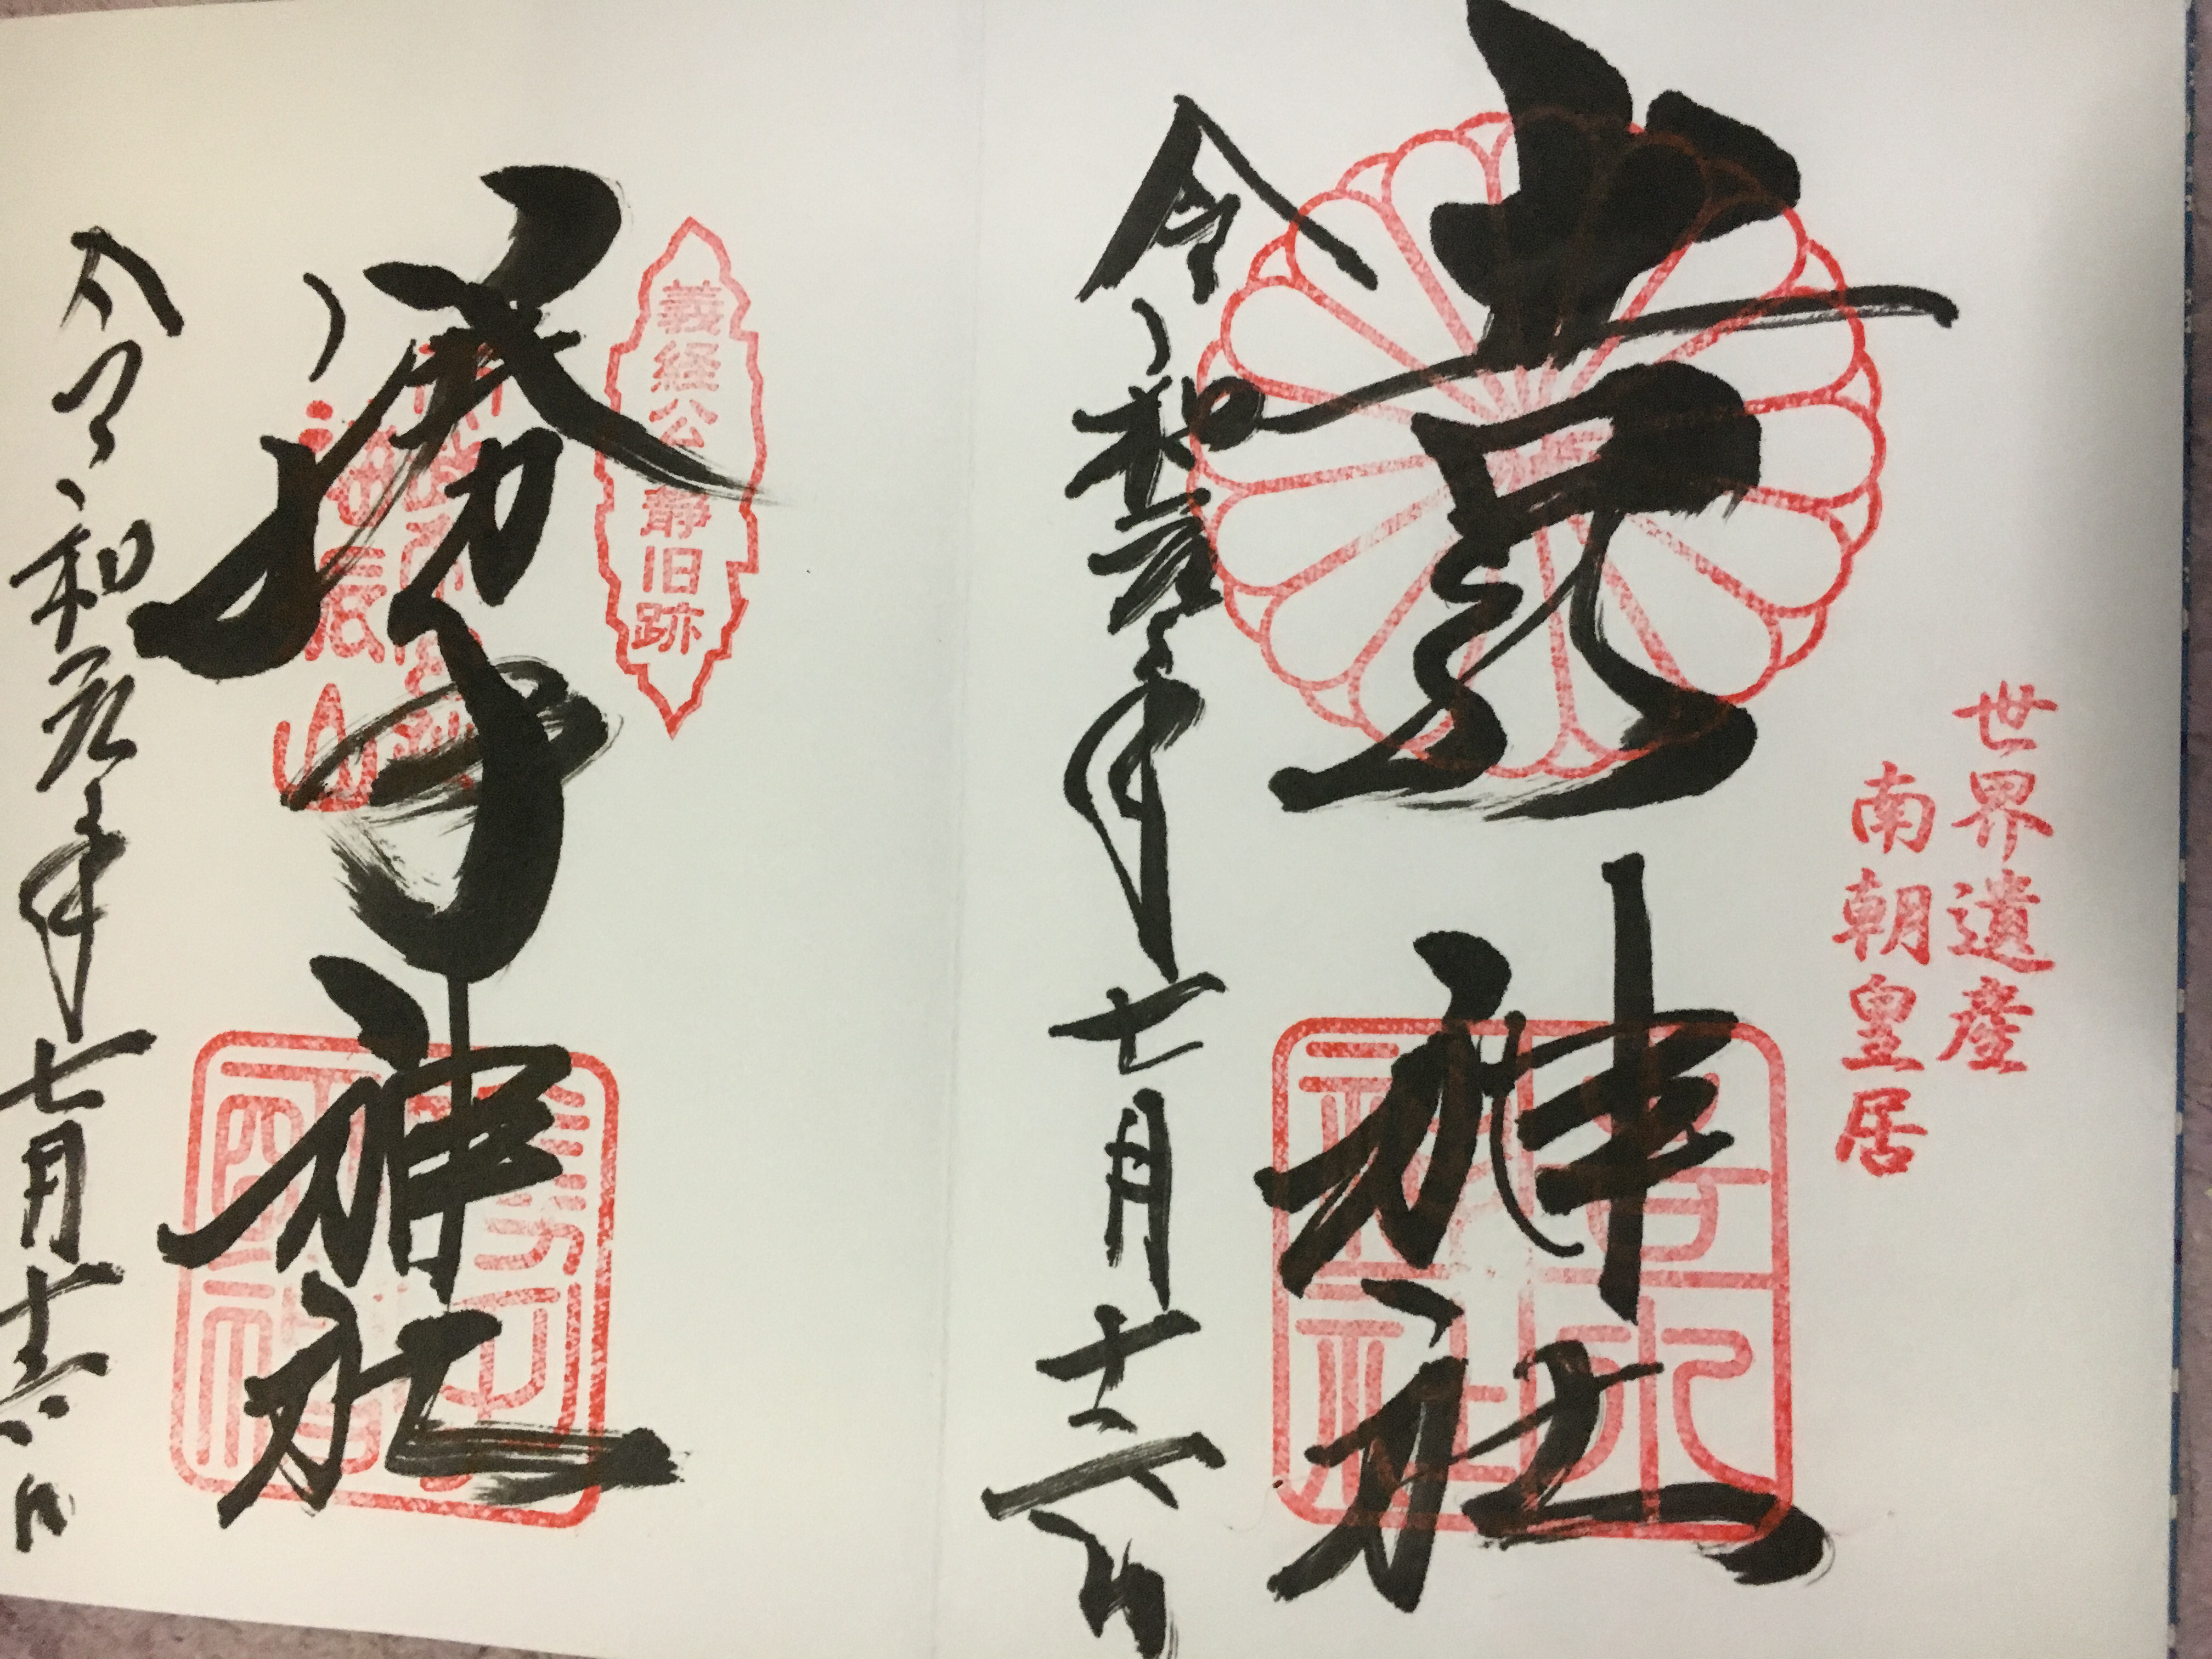 世界遺産
南朝皇居
吉水神社
吉水
神社
令和元年七月十六日
義経公静旧跡
勝手神社
勝手
神社
令和元年七月十六日